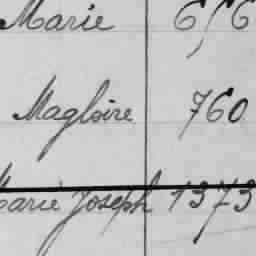 Marie 6,66
Magloire 760
Marie Joseph 1373